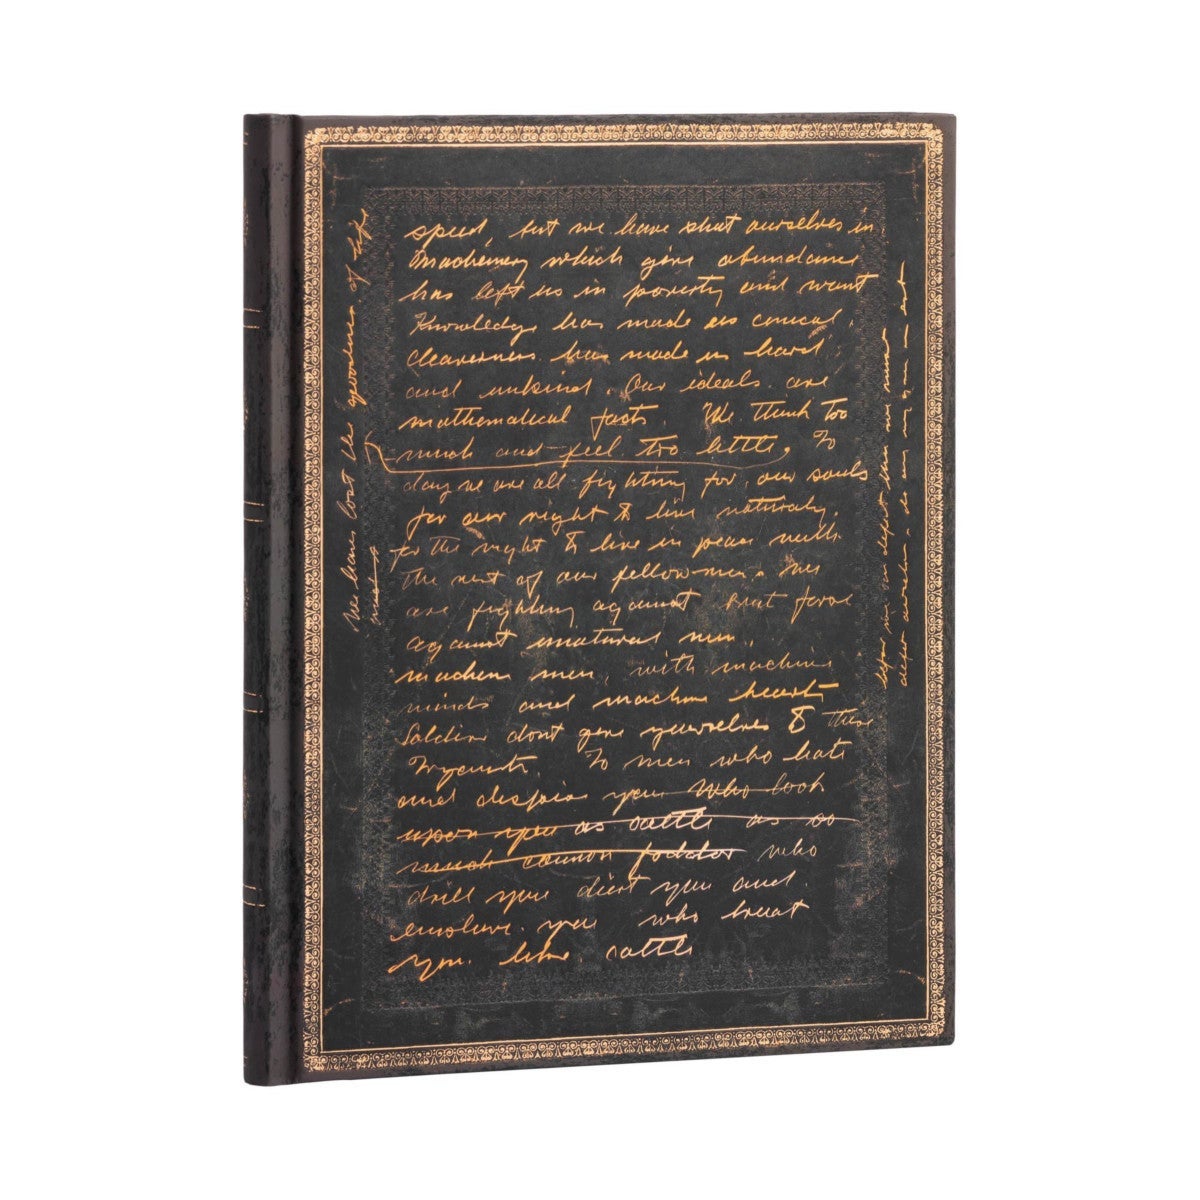 speed, but we have shut ourselves in
Machinery which give abundance
has left us in poverty and want
Knowledge has made us cinical,
cleaverness has made us hard
and unkind. Our ideals are
mathematical facts. We think too
much and feel too little, To
day we are all fighting for our souls
for our right to live naturaly,
for the right to live in peace with
the rest of our fellowmen.
are fighting against Brut force
against unatural men,
machine men, with machine
minds and machine hearts
Soldiers dont give yourselves to these
To men who hate
and despise you who look
upon you as cattle as so
much cannon fodder who
drill you diert you and
enslave you who treat
you like cattle
We have lost the goodness of life